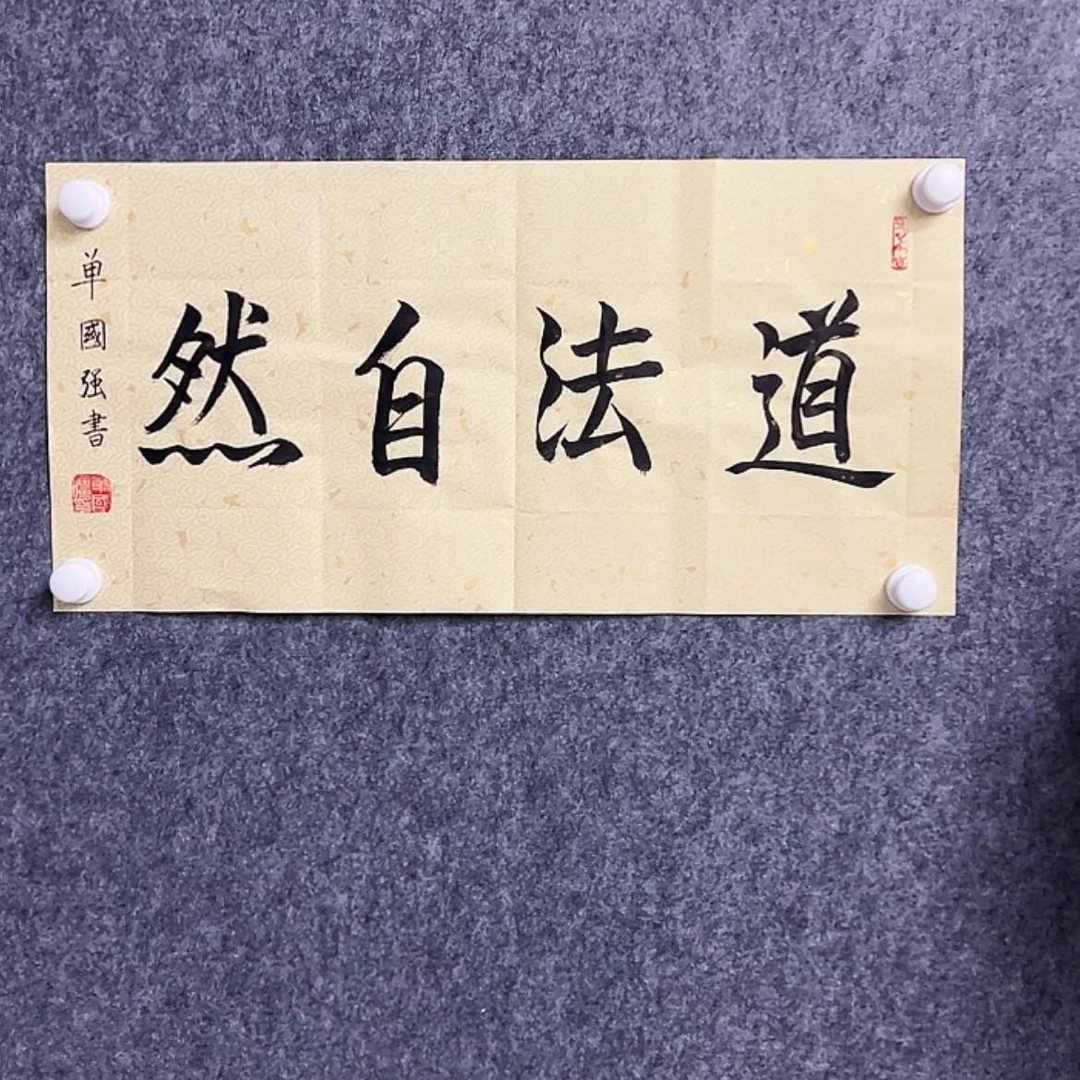 道法自然
单國强書